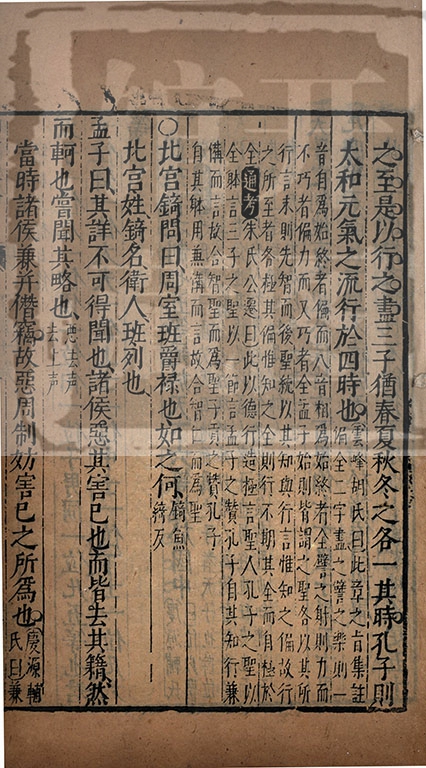 之至是以行之盡三子猶春夏秋冬之各一其時孔子則
太和元氣之流行於四時也
雲峰胡氏曰此章之旨集註
偏全二字盡之譬之樂則一
音自為始終者偏而八音相為始終者全譬之射則力而
不巧者偏力而又巧者全孟子始則皆謂之聖各以其所
行言末則先智而後聖統以其知與行言惟知之偏故行
之所至者各極其偏惟知之全則行不期其全而自極於
全通考朱氏公遷曰此以德行造極言聖人孔子之聖以
全躰言三子之聖以一節言孟子之贊孔子自其知行兼
備而言故合智聖而為聖子貢之贊孔子
自其躰用兼備而言故合智仁而為聖
○北宮錡問曰周室班爵祿也如之何
錡魚
綺反
北宮姓錡名衛人班列也
孟子曰其詳不可得聞也諸侯惡其害己也而皆去其籍然
而軻也嘗聞其略也
惡去声
去上声
當時諸侯兼并僭竊故惡周制妨害己之所爲也
慶源輔
氏曰兼